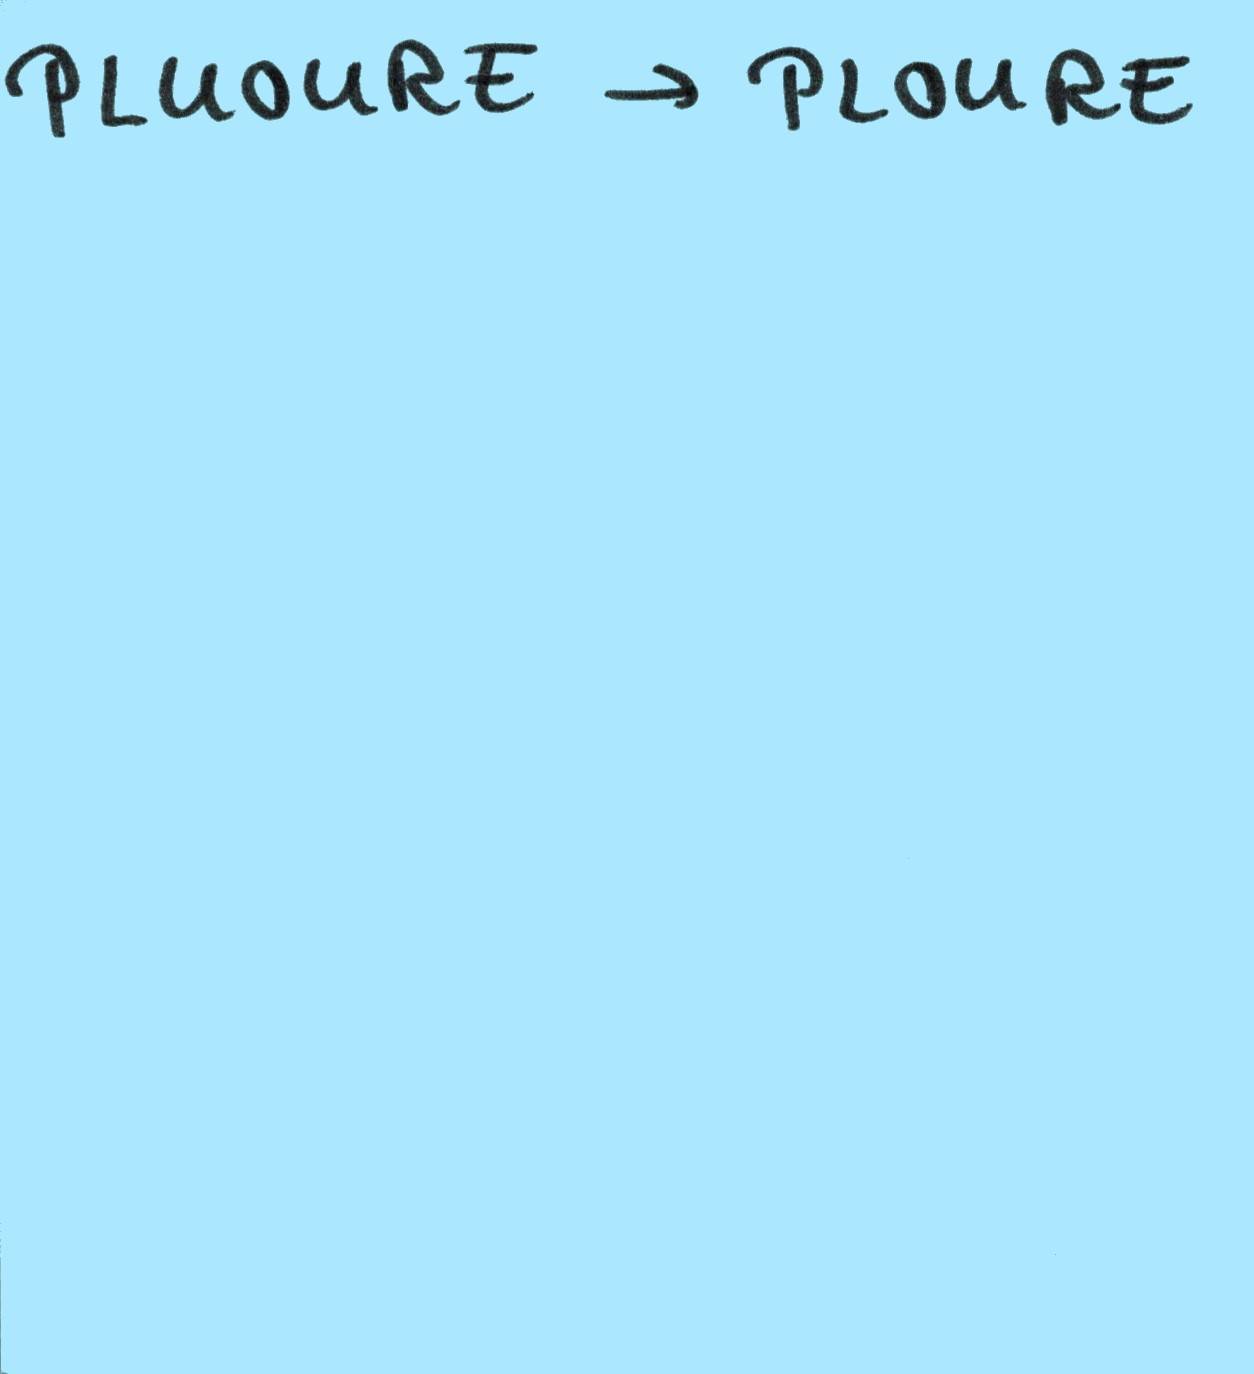 PLUOURE → PLOURE